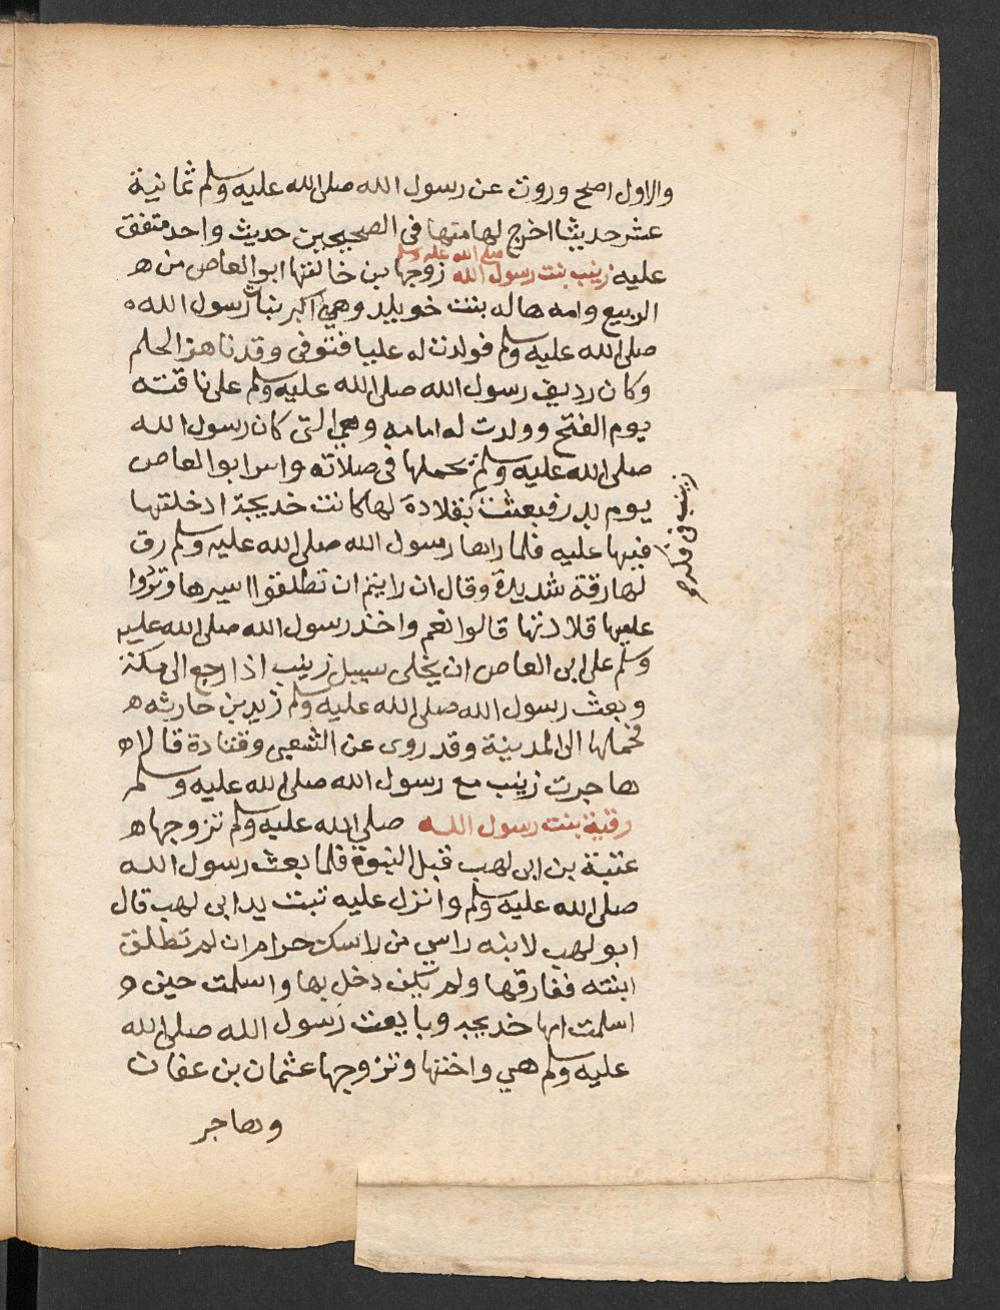 والاول اصح وروت عن رسول الله صلى الله عليه وسلم ثمانية
عشر حديثا اخرج لها منها في الصحيحين حديث واحد متفق
عليه زينب بنت رسول الله صلى الله عليه وسلم زوجها بن خالتها ابو العاص من
الربيع وامه هاله بنت خويلد وهي اكبر بنات رسول الله
صلى الله عليه وسلم فولدت له عليا فتوفى وقد ناهز الحلم
وكان رديف رسول الله صلى الله عليه وسلم على ناقته
يوم الفتح وولدت له امامه وهي التي كان رسول الله
صلى الله عليه وسلم يحملها في صلاته واسر ابو العاص
يوم بدر فبعثت بقلادة لها كانت خديجة ادخلتها
فيها عليه فلما راها رسول الله صلى الله عليه وسلم رق
لها رقة شديدة وقال ان رايتم ان تطلقوا اسيرها وتردوا
عليها قلادتها قالوا نعم واخذ رسول الله صلى الله عليه
وسلم على ابى العاص ان يخلى سبيل زينب اذا رجع الى مكة
وبعث رسول الله صلى الله عليه وسلم زيد بن حارثه
فحملها الى المدينة وقد روى عن الشعبى وقتادة قالا
هاجرت زينب مع رسول الله صلى الله عليه وسلم
رقية بنت رسول الله صلى الله عليه وسلم تزوجها
عتبة بن ابى لهب قبل النبوة فلما بعث رسول الله
صلى الله عليه وسلم وانزل عليه تبت يدا ابى لهب قال
ابو لهب لابنه راسي من راسك حرام ان لم تطلق
ابنته ففارقها ولم يكن دخل بها واسلمت حين
اسلمت امها خديجه وبايعت رسول الله صلى الله
عليه وسلم هي واختها وتزوجها عثمان بن عفان
وهاجر
زينب في